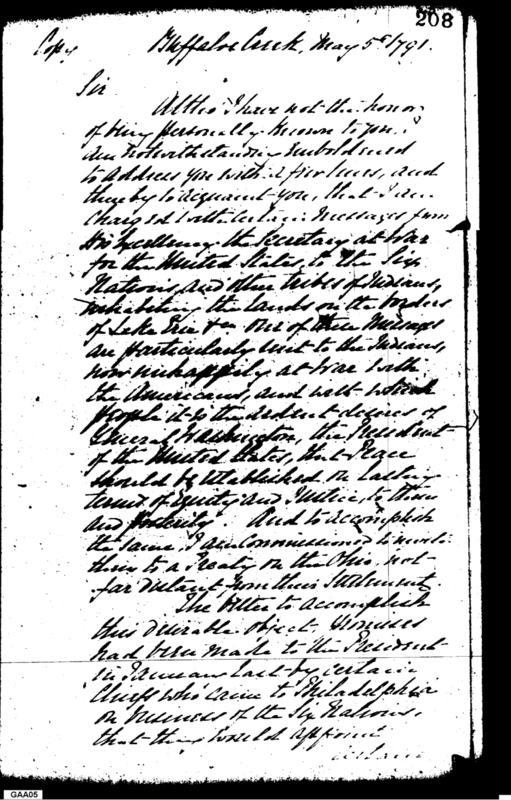 208
Copy
Buffaloe Creek, May 5th 1791.
Sir
Altho' I have not the honor
of being personally known to you, I
am notwithstanding emboldened
to address you with a few lines, and
thereby to acquaint you, that I am
charged with certain messages from
His Excellency the Secretary at War
for the United States, to the Six
Nations, and other tribes of Indians,
inhabiting the lands on the borders
of Lake Erie & on One of these Messages
are particularly sent to the Indians,
now unhappily at War with
the Americans, and with which
people it is the ardent desires of
General Washington, the President
of the United States, that Peace
should be established on lasting
terms of Equity and Justice, to them
and posterity. And to accomplish
the same, I am Commissioned to invite
them to a Treaty on the Ohio, not
far distant from their Settlement.
The better to accomplish
this desirable object, promises
had been made to the President
in January last by certain
Chiefs who came to Philadelphia
on business of the Six Nations,
that they would appoint
certain
GAA05